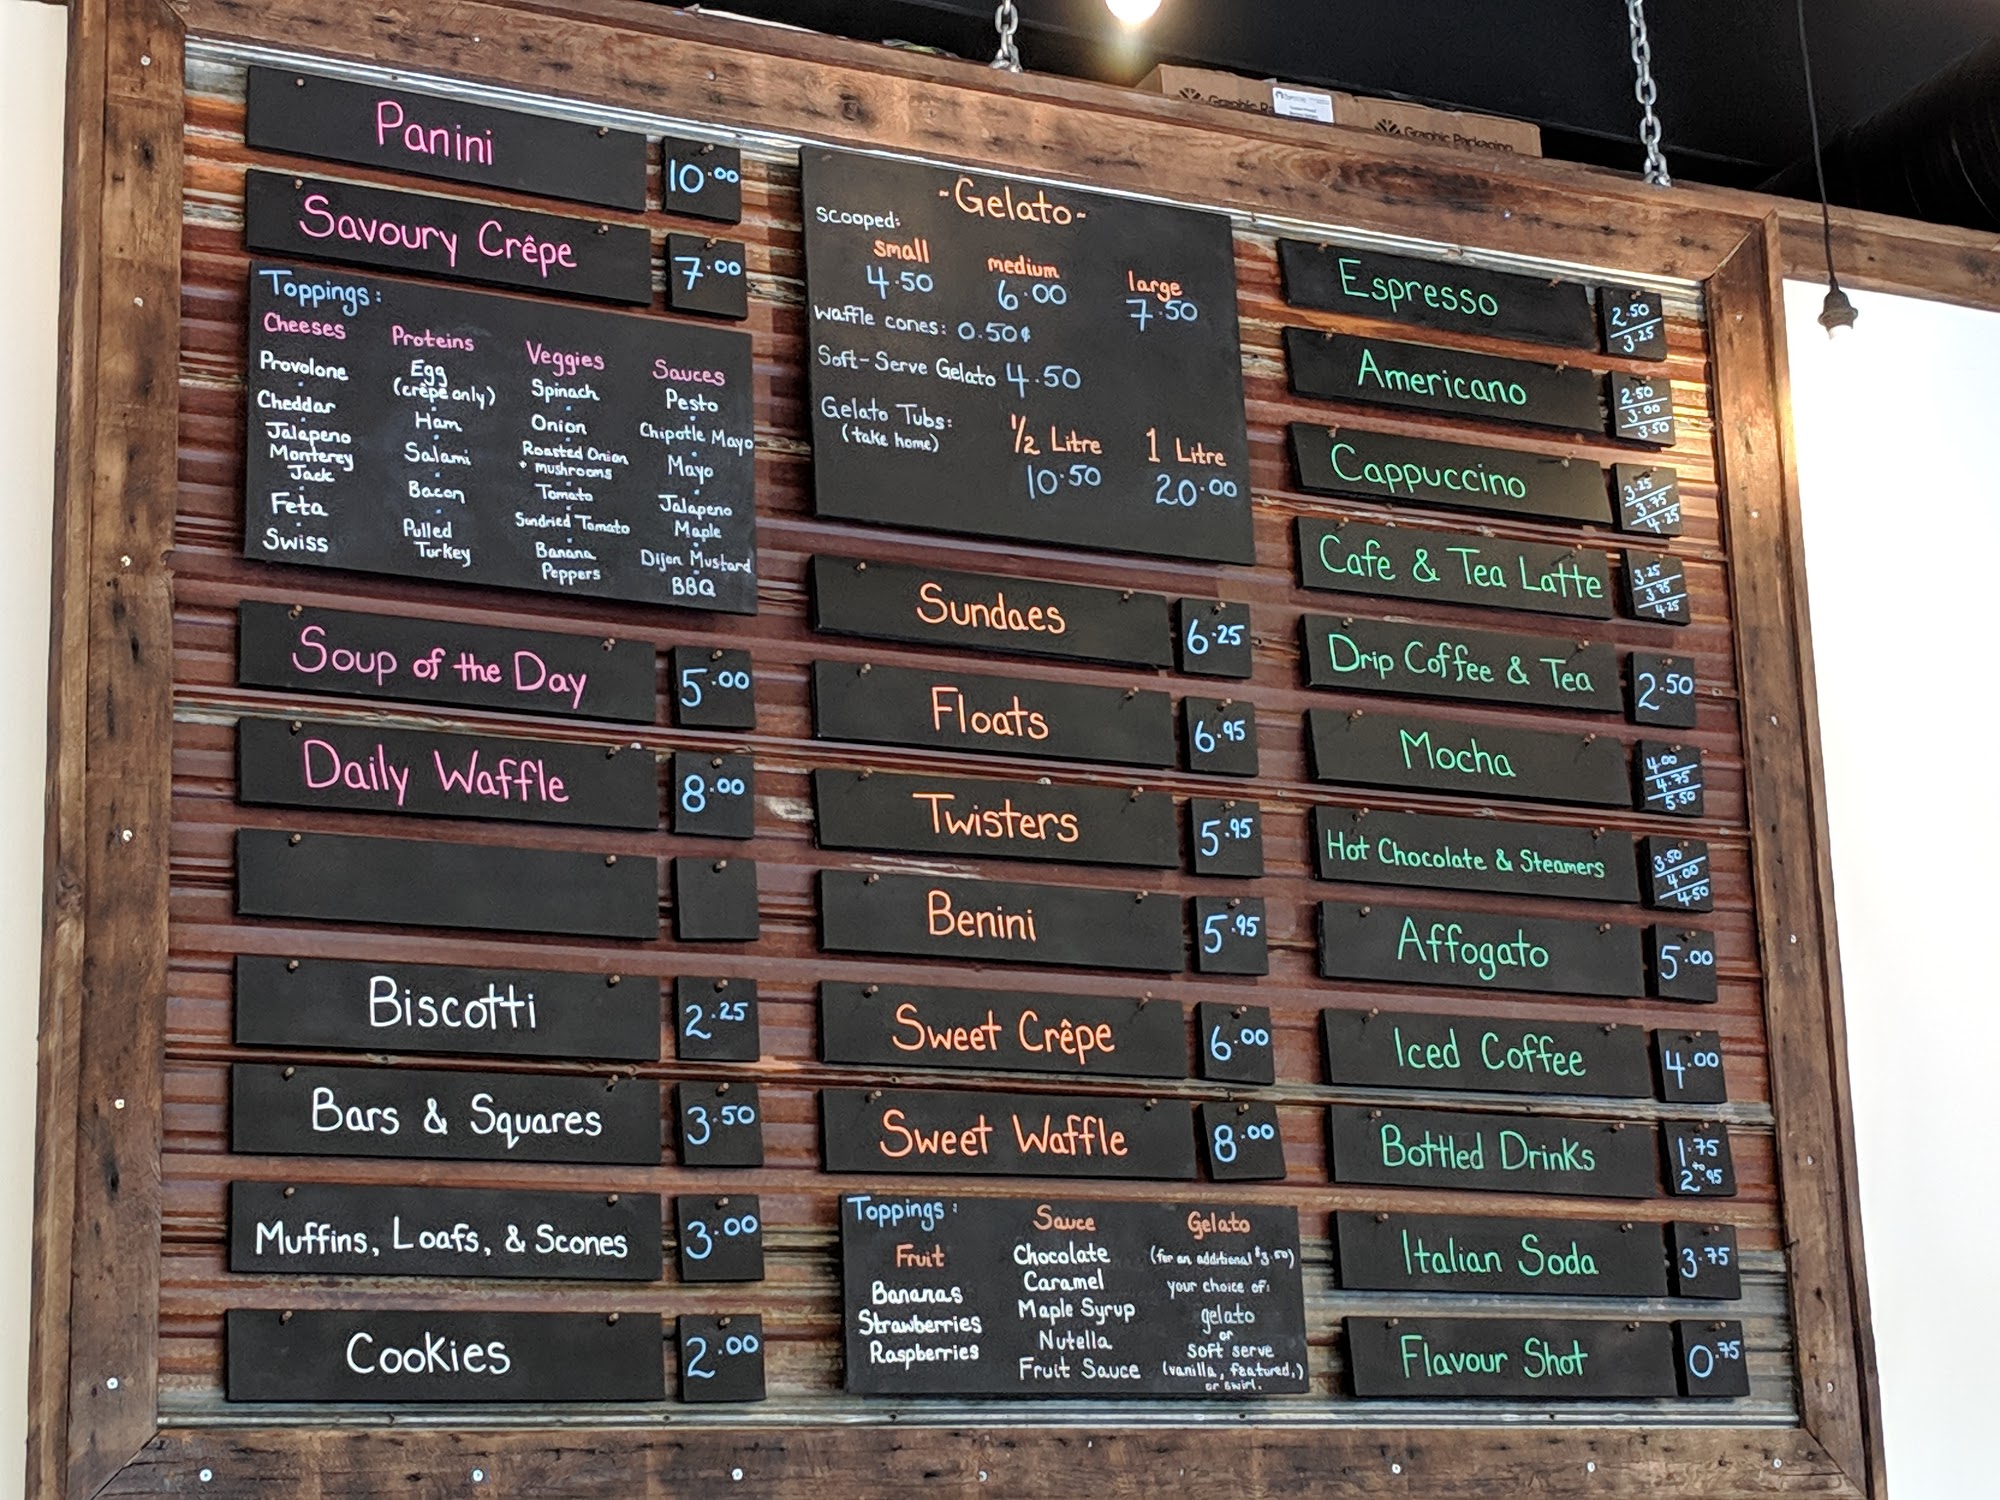 Panini 10.00
Savoury Crêpe 7.00
Toppings:
Cheeses
Provolone
Cheddar
Jalapeno
Monterey
Jack
Feta
Swiss
Proteins
Egg
(crêpe only)
Ham
Salami
Bacon
Pulled
Turkey
Veggies
Spinach
Onion
Roasted Onion
+ mushrooms
Tomato
Sundried Tomato
Banana
Peppers
Sauces
Pesto
Chipotle Mayo
Mayo
Jalapeno
Maple
Dijon Mustard
BBQ
Soup of the Day 5.00
Daily Waffle 8.00
Biscotti 2.25
Bars & Squares 3.50
Muffins, Loafs, & Scones 3.00
Cookies 2.00
-Gelato-
Scooped:
small medium large
4.50 6.00 7.50
waffle cones: 0.50¢
Soft-Serve Gelato 4.50
Gelato Tubs: 1/2 Litre 1 Litre
(take home) 10.50 20.00
Sundaes 6.25
Floats 6.95
Twisters 5.95
Benini 5.95
Sweet Crêpe 6.00
Sweet Waffle 8.00
Toppings:
Fruit
Bananas
Strawberries
Raspberries
Sauce
Chocolate
Caramel
Maple Syrup
Nutella
Fruit Sauce
Gelato
(for an additional $3.50)
your choice of:
gelato
or
soft serve
(vanilla, featured,)
or swirl.
Espresso 2.50 3.25
Americano 2.50 3.00 3.50
Cappuccino 3.25 3.75 4.25
Cafe & Tea Latte 3.25 3.75 4.25
Drip Coffee & Tea 2.50
Mocha 4.00 4.75 5.50
Hot Chocolate & Steamers 3.50 4.00 4.50
Affogato 5.00
Iced Coffee 4.00
Bottled Drinks 1.75 to 2.95
Italian Soda 3.75
Flavour Shot 0.75
Graphic Pa
Graphic Packaging